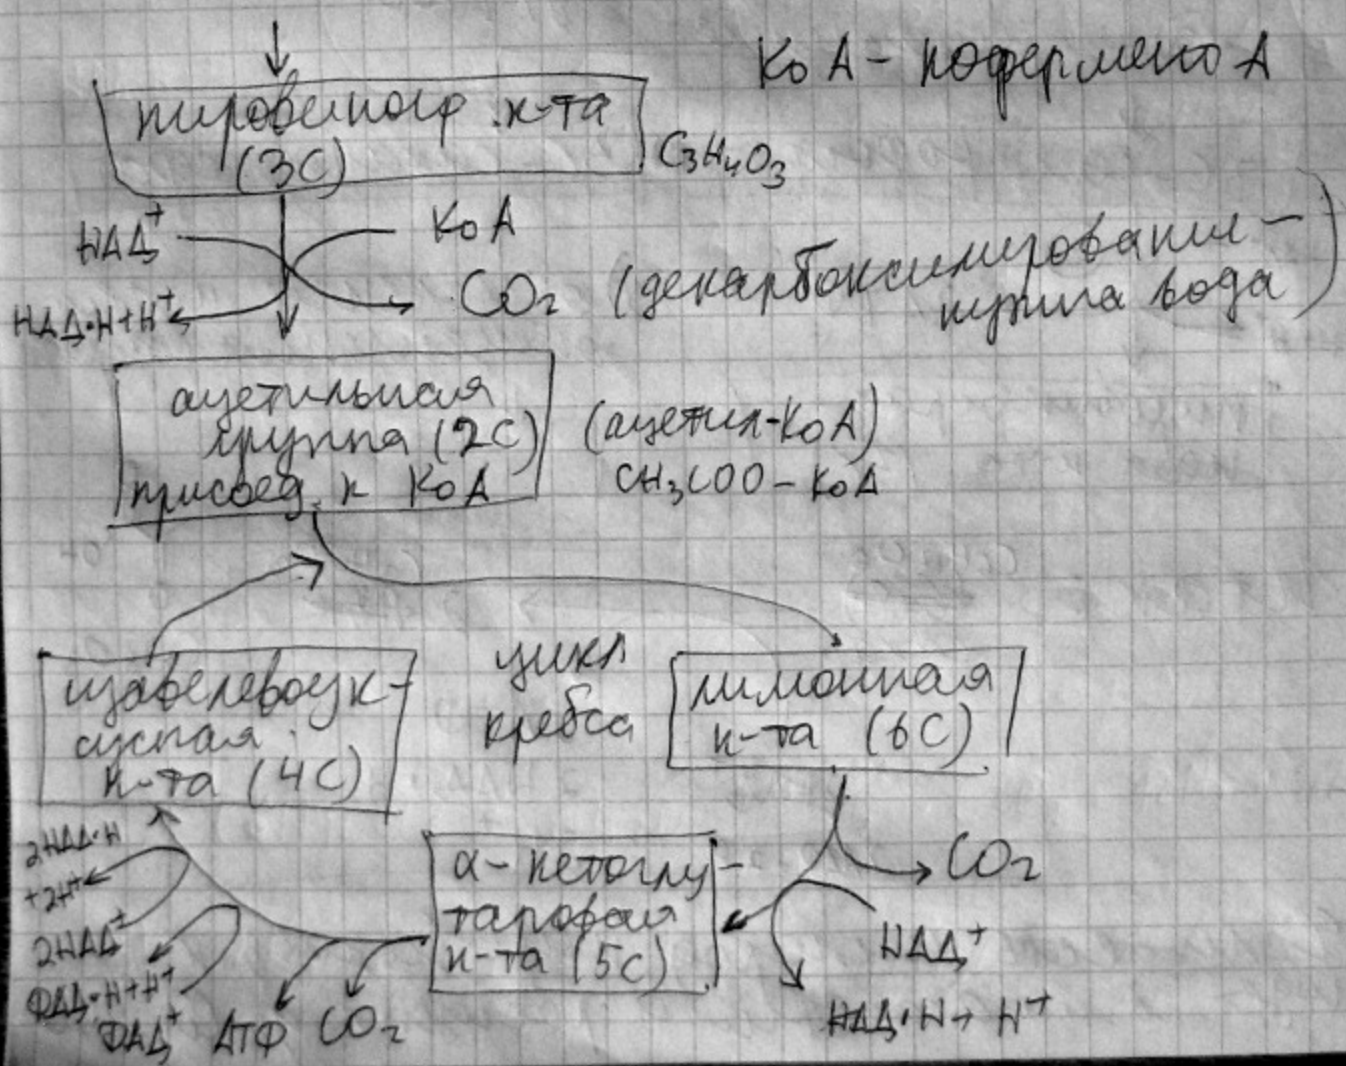 КоА - кофермент А
пировиногр. к-та
(3С)
C₃H₄O₃
НАД⁺
КоА
НАД•Н+Н⁺
CO₂ (декарбоксилирование -
нужна вода)
ацетильная
группа (2С)
присоед. к КоА
(ацетил-КоА)
CH₃COO - КоА
цикл
кребса
щавелевоук-
сусная
к-та (4С)
лимонная
к-та (6С)
CO₂
НАД⁺
НАД•Н + Н⁺
α - кетоглу-
таровая
к-та (5С)
2НАД•Н
+2Н⁺
2НАД⁺
ФАД•Н+Н⁺
ФАД⁺
АТФ
CO₂